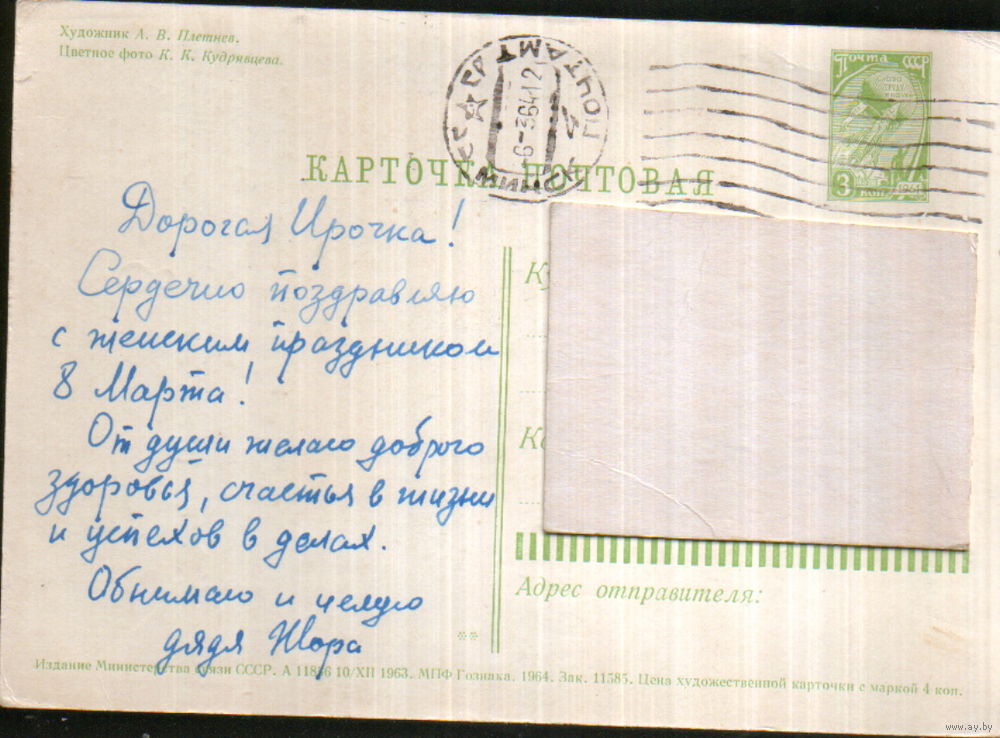 Художник А. В. Плетнев.
Цветное фото К. К. Кудрявцева.
МИНСК ПОЧТАМТ
6-364 12
Почта СССР
3 коп 1961
КАРТОЧКА ПОЧТОВАЯ
Дорогая Ирочка!
Сердечно поздравляю
с женским праздником
8 Марта!
От души желаю доброго
здоровья, счастья в жизни
и успехов в делах.
Обнимаю и целую
дядя Жора
Ку
Адрес отправителя:
**
Издание Министерства связи СССР. А 11886 10/XII 1963. МПФ Гознака. 1964. Зак. 11585. Цена художественной карточки с маркой 4 коп.
www.ay.by